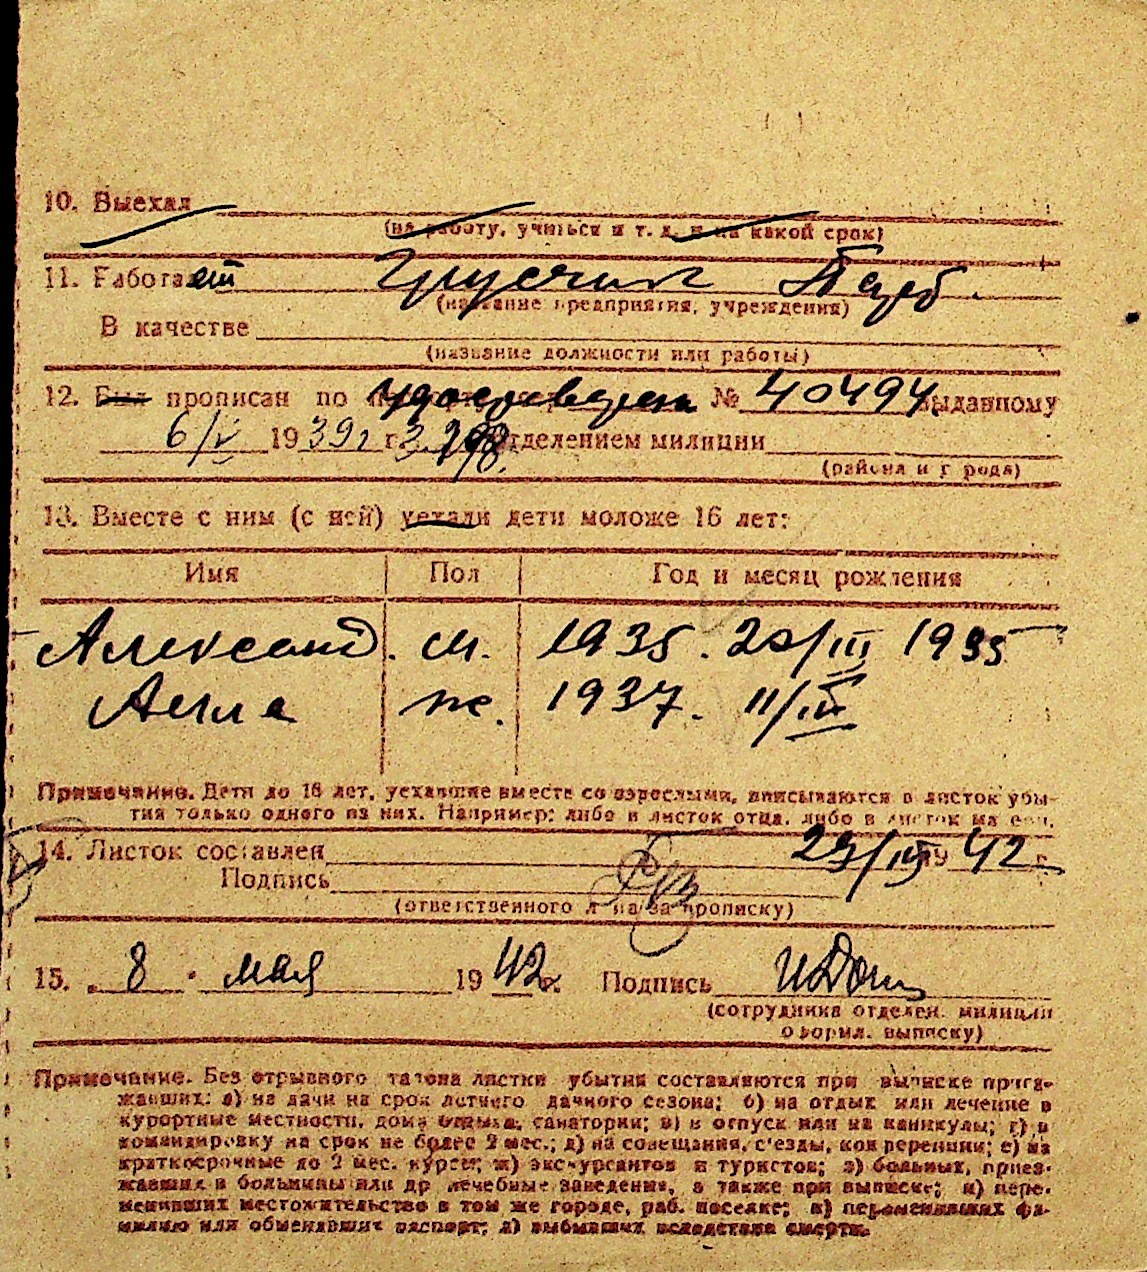 10. Выехал
(на работу, учиться и т. д. и на какой срок)
11. Работает
(название предприятия, учреждения)
В качестве
(название должности или работы)
12. Был прописан по удостоверен № 40494, выданному
6/V 1939г г. 3. отделением милиции
(района и города)
13. Вместе с ним (с ней) уехали дети моложе 16 лет:
Имя Пол Год и месяц рождения
Александ. м. 1935. 20/III 1935
Алла ж. 1937. 11/IV
Примечание. Дети до 16 лет, уехавшие вместе со взрослыми, вписываются в листок убы-
тия только одного из них. Например: либо в листок отца, либо в листок матери.
14. Листок составлен 29/IV 1942 г.
Подпись
(ответственного лица за прописку)
15. 8 . мая 1942 г. Подпись
(сотрудника отделен. милиции
оформл. выписку)
Примечание. Без отрывного талона листки убытия составляются при выписке приез-
жавших: а) на дачи на срок летнего дачного сезона; б) на отдых или лечение в
курортные местности, дома отдыха, санатории; в) в отпуск или на каникулы; г) в
командировку на срок не более 2 мес.; д) на совещания, с'езды, конференции; е) на
краткосрочные до 2 мес. курсы; ж) экскурсантов и туристов; з) больных, приез-
жавших в больницы или др. лечебные заведения, а также при выписке; и) пере-
менивших местожительство в том же городе, раб. поселке; к) переменивших фа-
милию или обменявших паспорт; л) выбывших вследствие смерти.